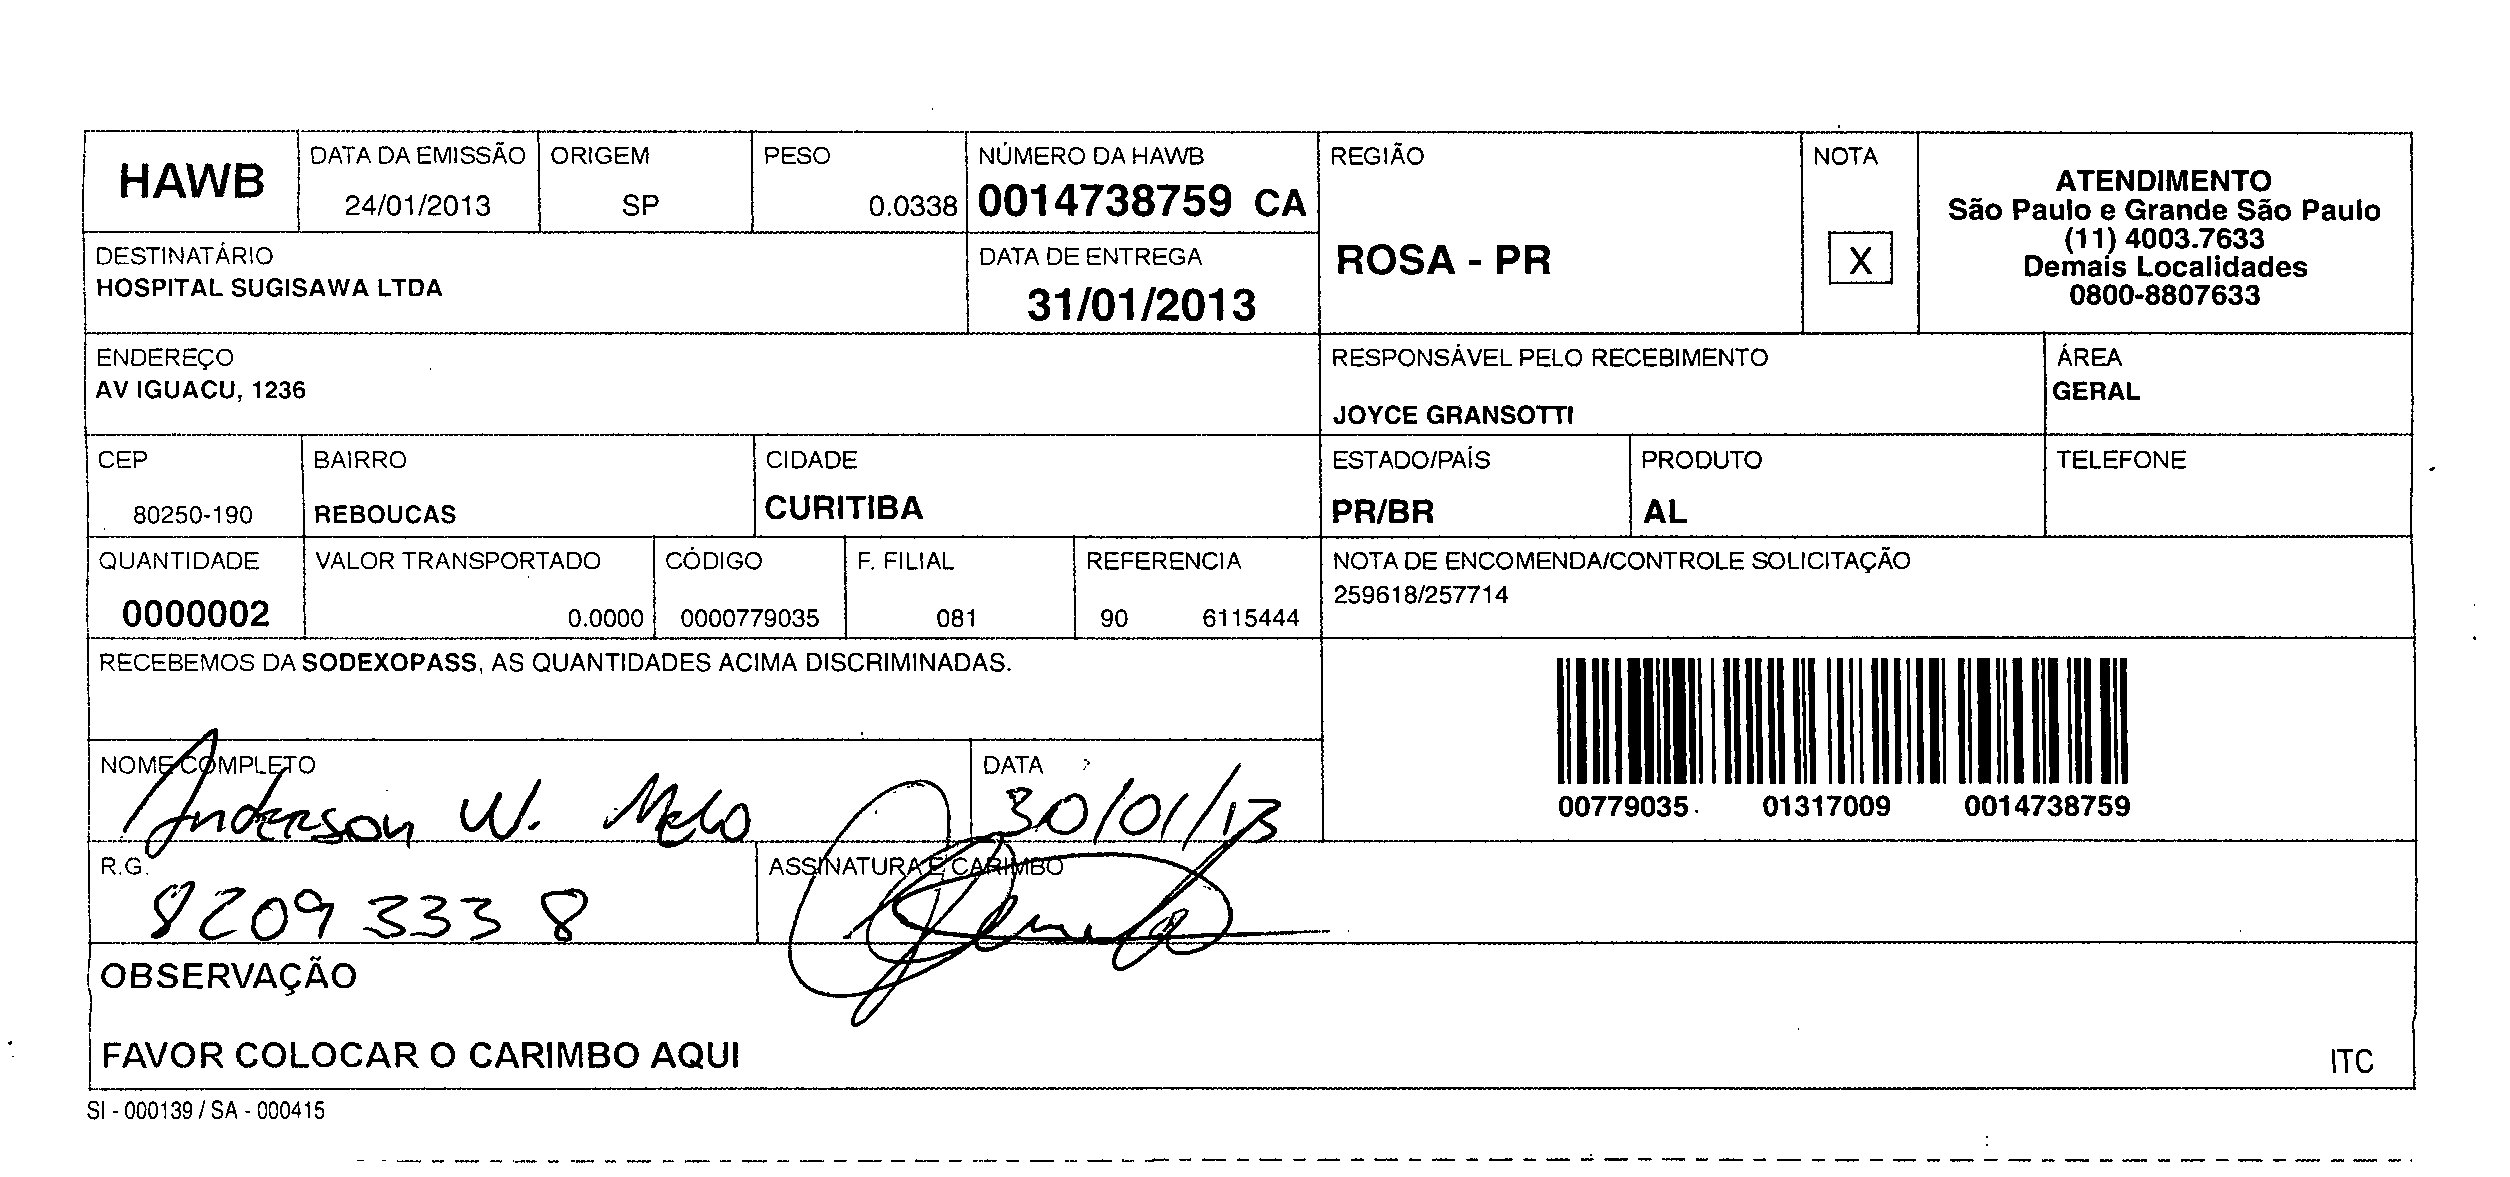 HAWB
DATA DA EMISSÃO
24/01/2013
ORIGEM
SP
PESO
0.0338
NÚMERO DA HAWB
0014738759 CA
REGIÃO
ROSA - PR
NOTA
X
ATENDIMENTO
São Paulo e Grande São Paulo
(11) 4003.7633
Demais Localidades
0800-8807633
DESTINATÁRIO
HOSPITAL SUGISAWA LTDA
DATA DE ENTREGA
31/01/2013
ENDEREÇO
AV IGUACU, 1236
RESPONSÁVEL PELO RECEBIMENTO
JOYCE GRANSOTTI
ÁREA
GERAL
CEP
80250-190
BAIRRO
REBOUCAS
CIDADE
CURITIBA
ESTADO/PAÍS
PR/BR
PRODUTO
AL
TELEFONE
QUANTIDADE
0000002
VALOR TRANSPORTADO
0.0000
CÓDIGO
0000779035
F. FILIAL
081
REFERENCIA
90 6115444
NOTA DE ENCOMENDA/CONTROLE SOLICITAÇÃO
259618/257714
RECEBEMOS DA SODEXOPASS, AS QUANTIDADES ACIMA DISCRIMINADAS.
00779035 01317009 0014738759
NOME COMPLETO
Anderson W. Melo
DATA
30/01/13
R.G.
8209333 8
ASSINATURA E CARIMBO
OBSERVAÇÃO
FAVOR COLOCAR O CARIMBO AQUI
ITC
SI - 000139 / SA - 000415